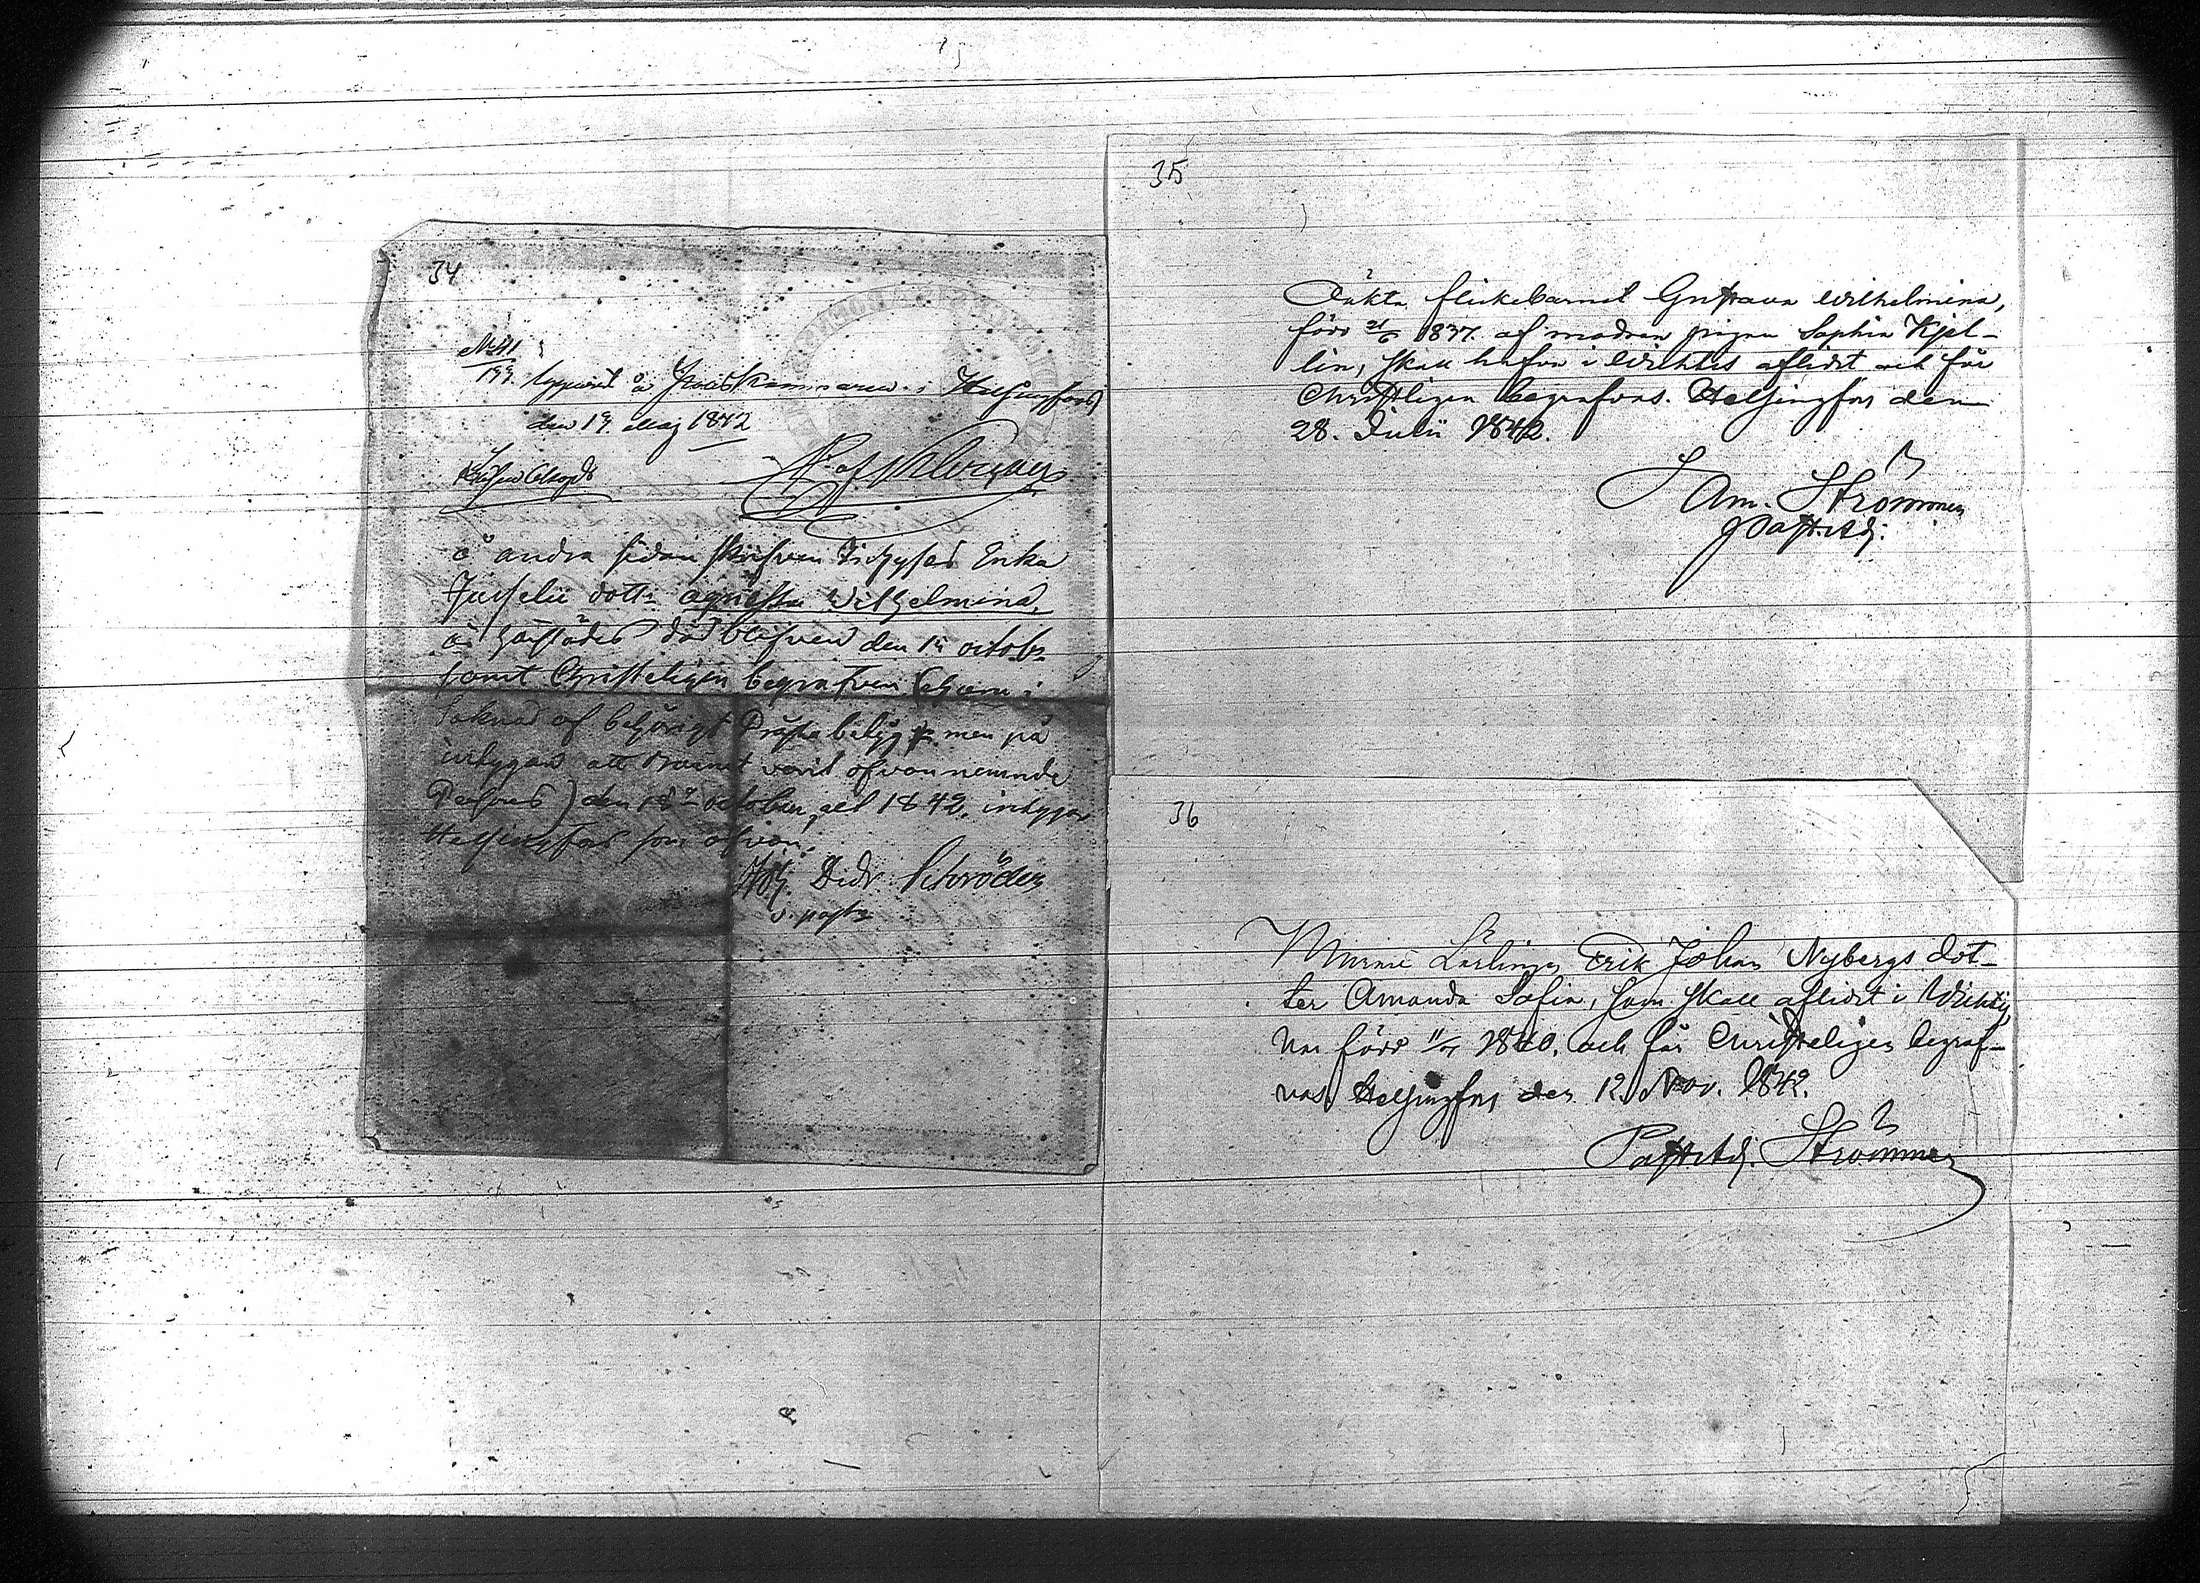 34
No 41
199. uppvist å Gouv. Kammaren i Helsingfors
den 19. Maj 1842
å andra sidan skrifven Enka
dotter Agnessa Wilhelmina,
är härstädes död blifven den 15 octobr.
samt Christeligen begrafven (ehuru i
saknad af behörigt Prästabetyg, men på
intygan att barnet varit ofvannemnde
Persons) den 18de october, ock 1842, intygar
Helsingfors som ofvan.
Joh. Didr. Schröder
v. past.
35
Oäkta flickebarnet Gustava Wilhelmina,
född 21/6 1837. af modren pigan Sophia Kjel-
lin, skall hafva i Wichtis aflidit och får
Christligen begrafvas. Helsingfors den
28. Julii 1842.
Am. Strömmer
Past. Adj.
36
Murare Lärlingen Erik Johan Nybergs dot-
ter Amanda Sofia, som skall aflidit i Wichtis,
var född 11/4 1840. och får Christeligen begraf-
vas. Helsingfors den 12. Nov. 1842.
Past. Adj. Strömmer